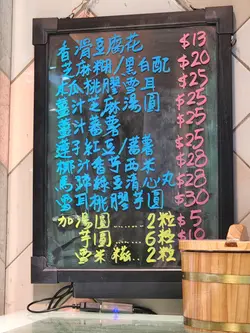 香滑豆腐花 $13
芝麻糊/黑白配 $20
木瓜桃膠雪耳 $25
薑汁芝麻湯圓 $25
薑汁蕃薯 $25
蓮子紅豆/蕃薯 $25
椰汁香芋西米 $28
馬蹄綠豆清心丸 $28
雪耳桃膠芋圓 $30
加湯圓......2粒 $5
芋圓......6粒
雪米糍...2粒